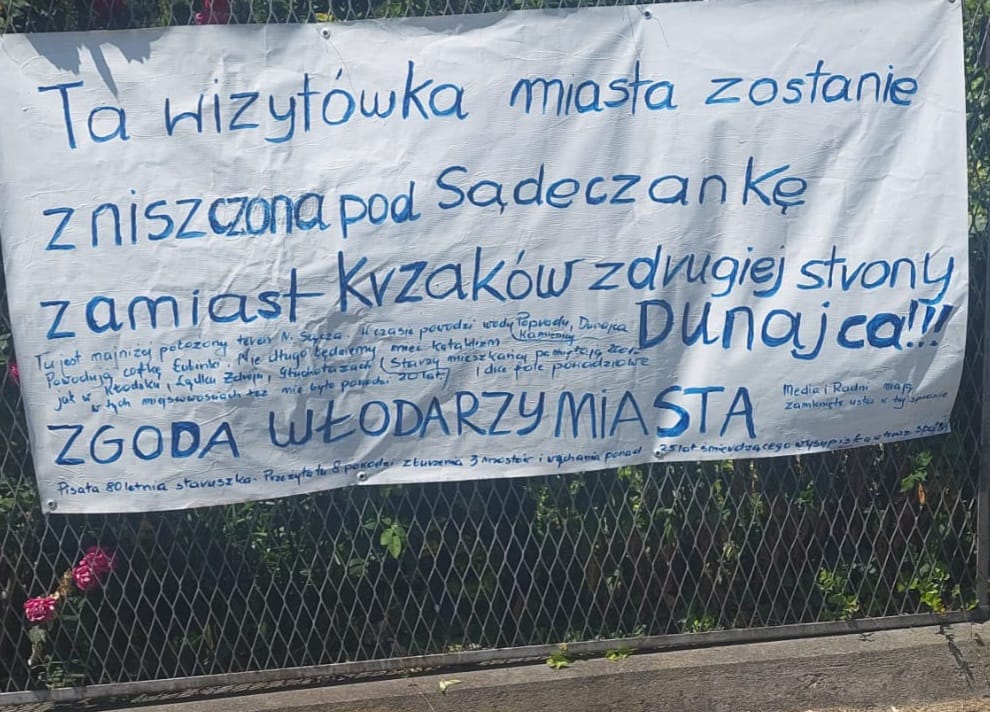 Ta wizytówka miasta zostanie
zniszczona pod Sądeczankę
zamiast Krzaków z drugiej strony
Dunajca!!!
Tu jest najniżej położony teren N. Sącza. W czasie powodzi wody Popradu, Dunajca
Kamienicy
Powodują cofkę Łubinki. Nie długo będziemy mieć kataklizm
jak w Kłodsku, Lądku Zdroju, Głuchołazach (Starzy mieszkańcy pamiętają
w tych miejscowościach też nie było powodzi 20 lat) i dwie fale powodziowe
ZGODA WŁODARZY MIASTA
Media i Radni mają
zamknięte usta w tej sprawie
Pisała 80 letnia staruszka. Przeżyła tu 8 powodzi zburzenia 3 mostów i wąchania ponad 25 lat śmierdzącego wysypiska a teraz